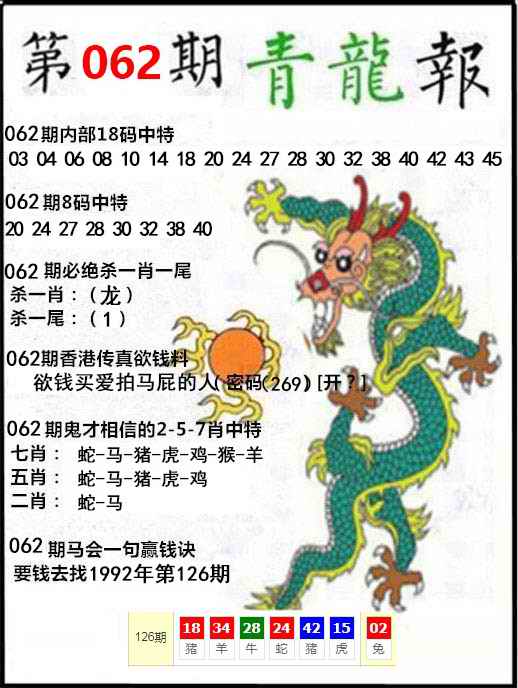 第062期青龍報
062期内部18码中特
03 04 06 08 10 14 18 20 24 27 28 30 32 38 40 42 43 45
062期8码中特
20 24 27 28 30 32 38 40
062期必绝杀一肖一尾
杀一肖：（龙）
杀一尾：（1）
062期香港传真欲钱料
欲钱买爱拍马屁的人(密码(269)[开?]
062期鬼才相信的2-5-7肖中特
七肖： 蛇-马-猪-虎-鸡-猴-羊
五肖： 蛇-马-猪-虎-鸡
二肖： 蛇-马
062期马会一句赢钱诀
要钱去找1992年第126期
126期 18 34 28 24 42 15 02
猪 羊 牛 蛇 猪 虎 兔